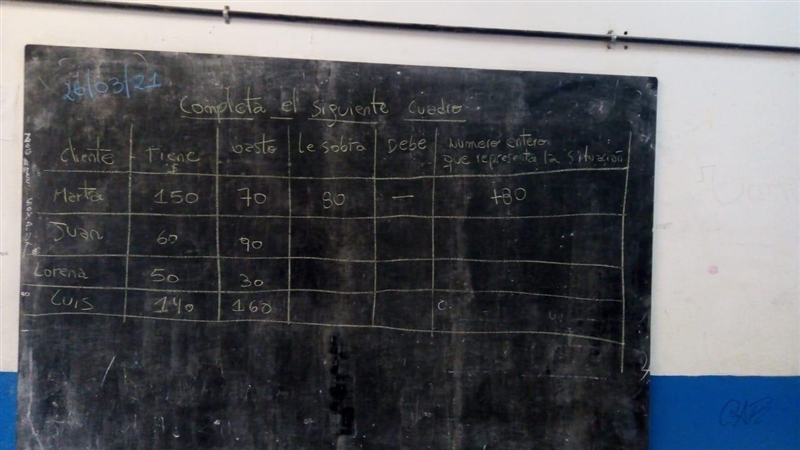 26/03/21
Completa el siguiente cuadro
Cliente Tiene gasto Le sobra Debe Numero entero
que representa la situación
$
Marta 150 70 80 — +80
Juan 60 90
Lorena 50 30
Luis 140 160